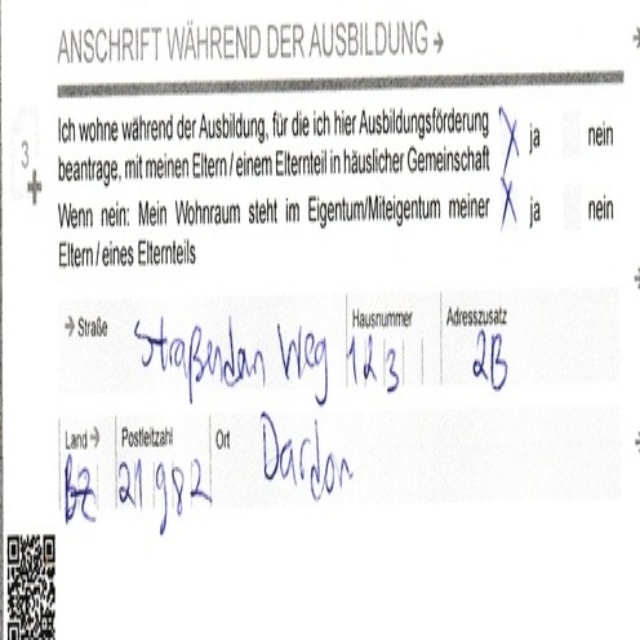 ANSCHRIFT WÄHREND DER AUSBILDUNG →
Ich wohne während der Ausbildung, für die ich hier Ausbildungsförderung
beantrage, mit meinen Eltern / einem Elternteil in häuslicher Gemeinschaft
X ja nein
3
Wenn nein: Mein Wohnraum steht im Eigentum/Miteigentum meiner
Eltern / eines Elternteils
X ja nein
→ Straße Hausnummer Adresszusatz
Weg 123 2B
Land → Postleitzahl Ort
BZ 21982 Dardon